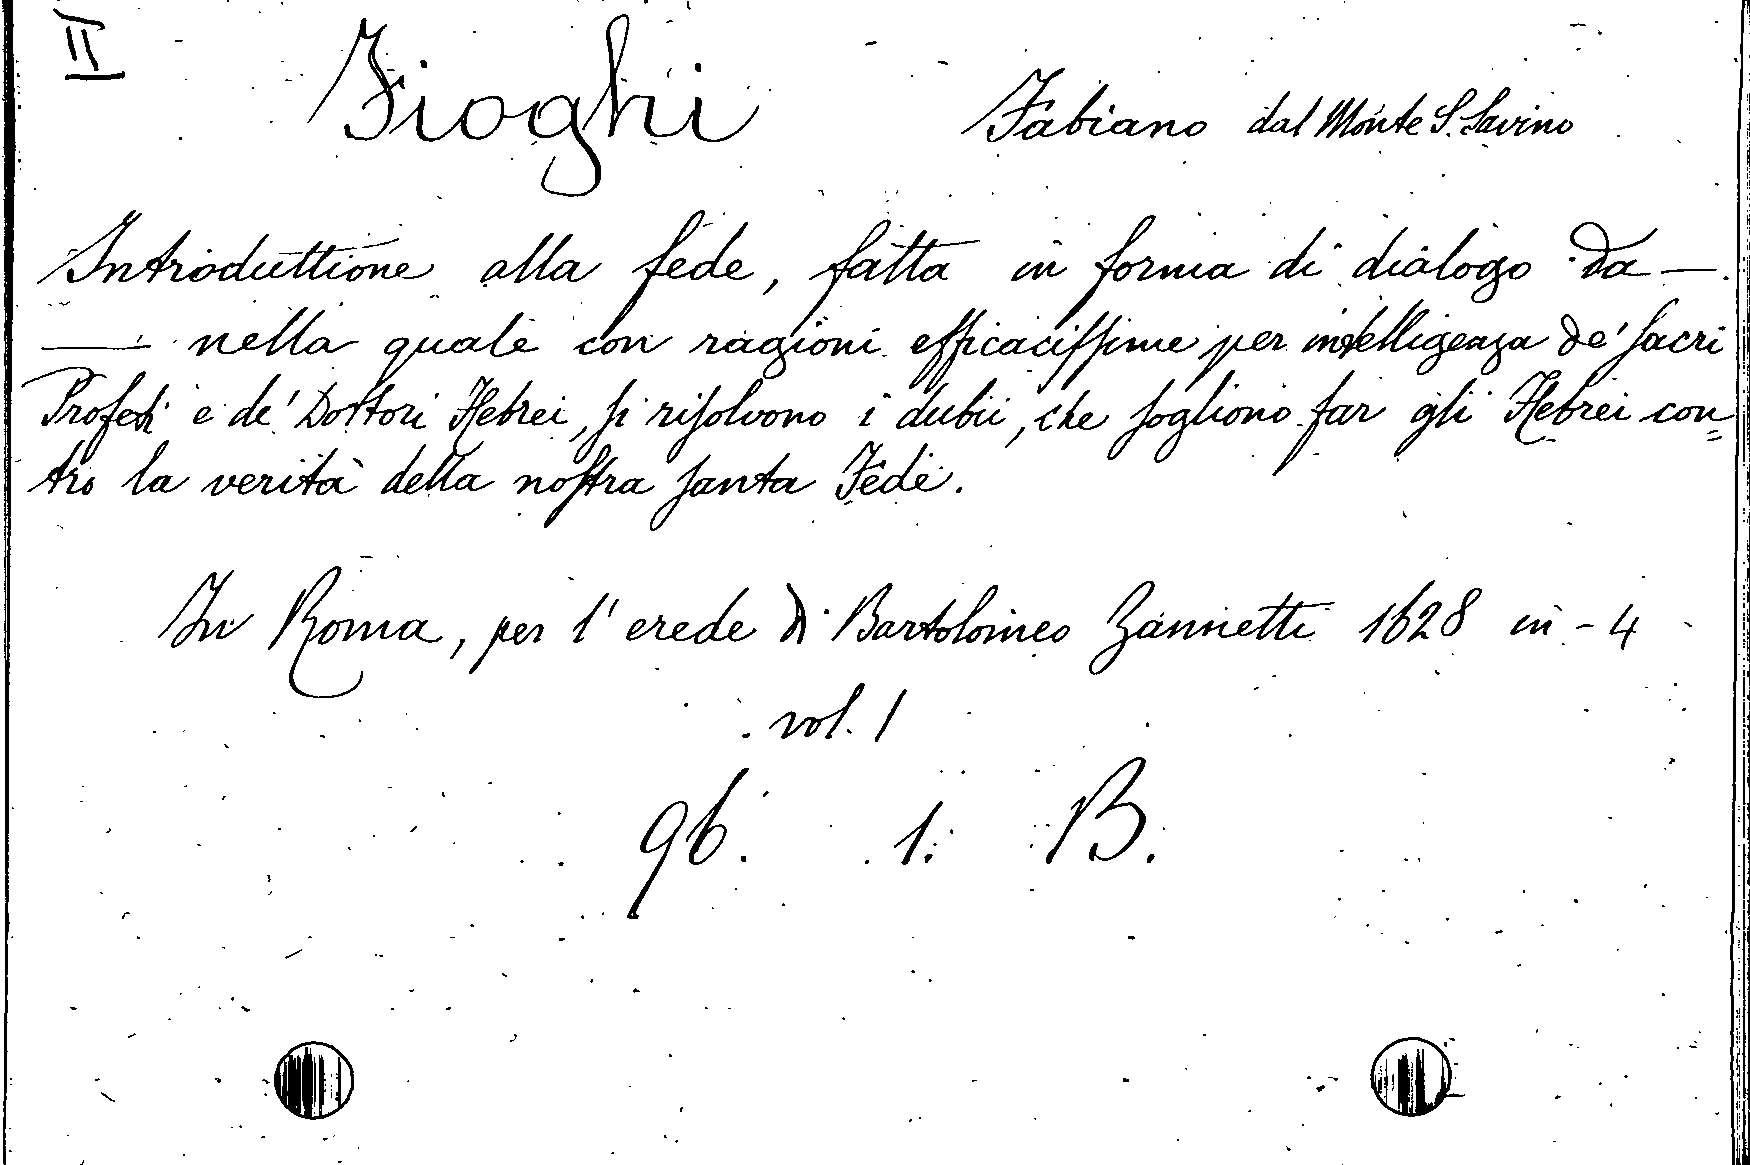 II
Fioghi Fabiano dal Monte S. Savino
Introduttione alla fede, fatta in forma di dialogo da —
— nella quale con ragioni efficaciſſime per intelligenza de' ſacri
Profeti e de' Dottori Hebrei, ſi riſolvono i dubii, che ſogliono far gli Hebrei con=
tro la verità della noſtra ſanta Fede.
In Roma, per l'erede di Bartolomeo Zannetti 1628 in-4
vol. 1
96. 1. B.